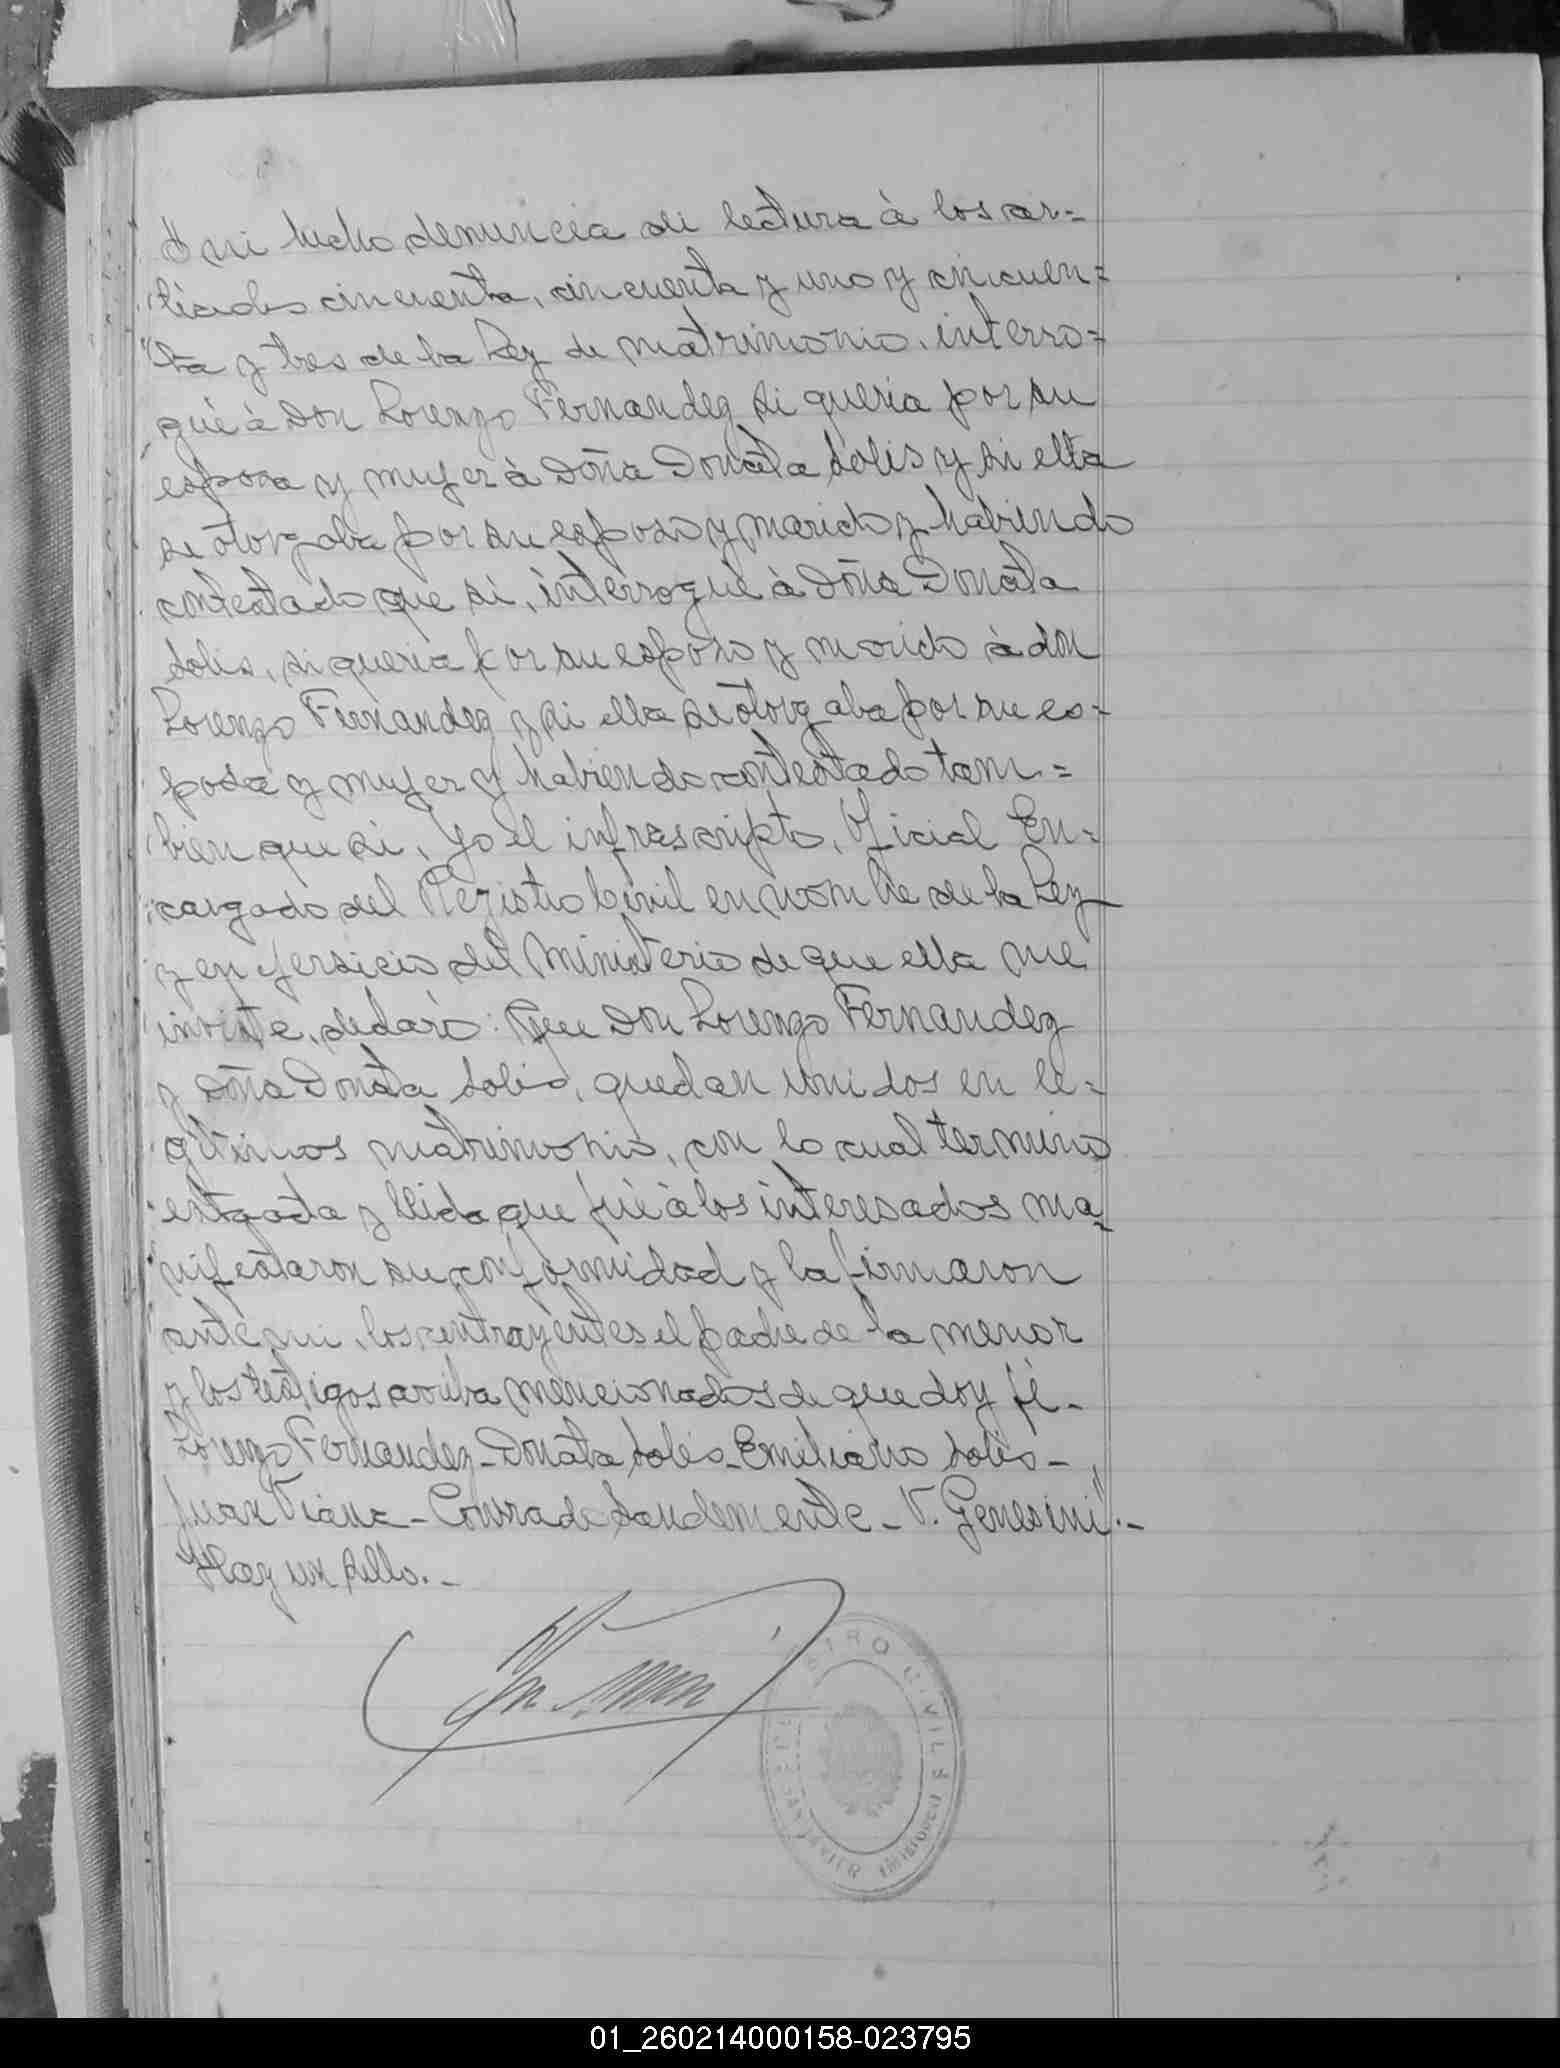 á mi hecho denuncia di lectura à los ar=
ticulos cincuenta, cincuenta y uno y cincuen=
ta y tres de la Ley de matrimonio, interro=
gué à Don Lorenzo Fernandez si queria por su
esposa y mujer à Doña Donata Solis y si ella
se otorgaba por su esposo y marido y habiendo
contestado que si, interrogué à Doña Donata
Solis, si queria por su esposo y marido à don
Lorenzo Fernandez y si ella se otorgaba por su es-
posa y mujer y habiendo contestado tam=
bien que si, Yo el infrascripto, Oficial En=
cargado del Registro Civil en nombre de la Ley
y en ejersicio del Ministerio de que ella me
inviste, declaro: Que Don Lorenzo Fernandez
y Doña Donata Solis, quedan unidos en le=
gitimos matrimonio, con lo cual termino
esta y leida que fué à los interesados ma-
nifestaron su conformidad y la firmaron
ante mi, los contrayentes el padre de la menor
y los testigos arriba mencionados de que doy fé.
Lorenzo Fernandez - Donata Solis - Emiliano Solis -
Juan Viana - Conrado Sandemente - V. Genesini".-
Hay un sello.-
REGISTRO CIVIL
SAN JAVIER (MISIONES)
01_260214000158-023795